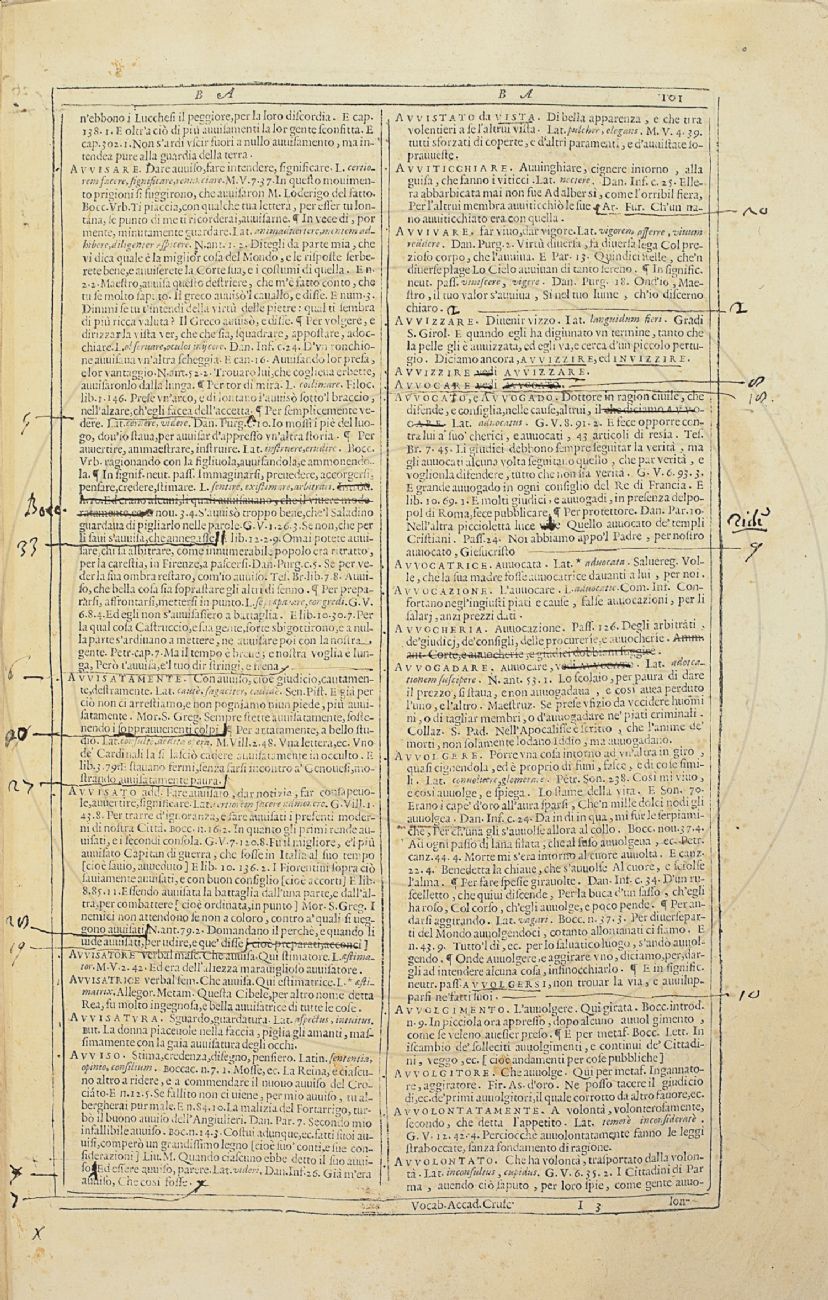 B A
B A
101
n'ebbono i Lucchesi il peggiore, per la loro discordia. E cap.
138.1. E oltr'a ciò di più auuisamenti la lor gente sconfitta. E
cap. 302.1. Non s'ardì vscir fuori a nullo auuisamento, ma in-
tendea pure alla guardia della terra.
AVVISARE. Dare auuiso, fare intendere, significare. L. certio-
rem facere, significare, M. V. 7.37. In questo mouimen-
to prigioni si fuggirono, che auuisaron M. Loderigo del fatto.
Bocc. Vrb. Ti piaccia, con qualche tua lettera, per esser tu lon-
tana, se punto di me ti ricorderai, auuisarne. ¶ In vece di, por
mente, minutamente guardare. Lat. animaduertere, mentem ad-
hibere, diligenter aspicere. N. ant. 1.2. Ditegli da parte mia, che
vi dica quale è la miglior cosa del Mondo, e le risposte serbe-
rete bene, e auuiserete la Corte sua, e i costumi di quella. E n.
2.2. Maestro, auuisa questo destriere, che m'è fatto conto, che
tu se molto saputo. Il greco auuisò 'l cauallo, e disse. E num. 3.
Dimmi se tu t'intendi della virtù delle pietre: qual ti sembra
di più ricca valuta? Il Greco auuisò, e disse. ¶ Per volgere, e
dirizzar la vista ver, che che sia, squadrare, appostare, adoc-
chiare. L. obseruare, oculos conjicere. Dan. Inf. c. 24. D'vn ronchio-
ne auuisaua vn'altra scheggia. E can. 16. Auuisando lor presa,
e lor vantaggio. N. ant. 52.2. Trouaro lui, che coglieua erbette,
auuisaronlo dalla lunga. ¶ Per tor di mira. L. collimare. Filoc.
lib. 1.146. Prese vn'arco, e di lontano l'auuisò sotto 'l braccio,
nell'alzare, ch'egli facea dell'accetta. ¶ Per semplicemente ve-
dere. Lat. cernere, videre. Dan. Purg. c. 10. Io mossi i piè del luo-
go, dou'io staua, per auuisar d'appresso vn'altra storia. ¶ Per
auuertire, ammaestrare, instruire. Lat. instruere, erudire. Bocc.
Vrb. ragionando con la figliuola, auuisandola, e ammonendo-
la. ¶ In signif. neut. pass. Immaginarsi, prenedere, accorgersi,
pensare, credere, stimare. L. sentire, existimare, arbitrari.
Bocc. nou. 3.4. S'auuisò troppo bene, che 'l Saladino
guardaua di pigliarlo nelle parole. G. V. 1.26.3. Se non, che per
li saui s'auuisa, che annegasse. E lib. 12.2.9. Omai potete auui-
sare, chi sa albitrare, come innumerabile popolo era ritratto,
per la carestia, in Firenze, a pascersi. Dan. Purg. c. 5. Se per ve-
der la sua ombra restaro, com'io auuiso. Tes. Br. lib. 7.8. Auui-
so, che bella cosa sia soprastare gli altri di senno. ¶ Per prepa-
rarsi, affrontarsi, mettersi in punto. L. se praeparare, congredi. G. V.
6.8.4. Ed egli non s'auuisasse ro a battaglia. E lib. 10.30.7. Per
la qual cosa Castruccio, e sua gente, forte sbigottirono, e a nul-
la parte s'ardinano a mettere, ne auuisare poi con la nostra
gente. Petr. cap. 7. Ma il tempo e breue, e nostra voglia e lun-
ga, Però t'auuisa, e 'l tuo dir stringi, e frena
AVVISATAMENTE. Con auuiso, cioè giudicio, cautamen-
te, destramente. Lat. cautè, sagaciter, callidè. Sen. Pist. E già per
ciò non ci arrestiamo, e non pognamo niun piede, più auui-
satamente. Mor. S. Greg. Sempre stette auuisatamente, soste-
nendo i soprauuenenti colpi. ¶ Per artatamente, a bello stu-
dio. Lat. consulto, dedita opera. M. Vill. 2.48. Vna lettera, ec. Vno
de' Cardinali la si lasciò cadere auuisatamente in occulto. E
lib. 3.79. E stauano fermi, senza farsi incontro a' Genouesi, mo-
strando auuisatamente paura.
AVVISATO add. Fare auuisato, dar notizia, far consapeuo-
le, auuertire, significare. Lat. certiorem facere, admonere. G. Vill. 1.
43.8. Per trarre d'ignoranza, e fare auuisati i presenti moder-
ni di nostra Città. Bocc. n. 16.2. In quanto gli primi rende au-
uisati, e i secondi consola. G. V. 7.120.8. Fu il migliore, e 'l più
auuisato Capitan di guerra, che fosse in Italia al suo tempo
[cioè sauio, auueduto] E lib. 10.136.2. I Fiorentini sopra ciò
sauiamente auuisati, e con buon consiglio [cioè accorti] E lib.
8.85.11. Essendo auuisata la battaglia dall'una parte, e dall'al-
tra, per combattere [cioè ordinata, in punto] Mor. S. Greg. I
nemici non attendono se non a coloro, contro a' quali si veg-
gono auuisati. N. ant. 79.2. Domandano il perchè, e quando li
uide auuisati, per udire, e que' disse [cioè preparati, acconci]
AVVISATORE verbal masc. Che auuisa. Qui stimatore. L. æstima-
tor. M. V. 2.42. Ed era dell'altezza marauiglioso auuisatore.
AVVISATRICE verbal fem. Che auuisa. Qui estimatrice. L. * æsti-
matrix. Allegor. Metam. Questa Cibele, per altro nome detta
Rea, fu molto ingegnosa, e bella auuisatrice di tutte le cose.
AVVISATVRA. Sguardo, guardatura. Lat. aspectus, intuitus.
But. La donna piaceuole nella faccia, piglia gli amanti, mas-
simamente con la gaia auuisatura degli occhi.
AVVISO. Stima, credenza, disegno, pensiero. Latin. sententia,
opinio, consilium. Boccac. n. 7.1. Mosse, ec. La Reina, e ciascu-
no altro a ridere, e a commendare il nuouo auuiso del Cro-
ciato. E n. 12.5. Se fallito non ci viene, per mio auuiso, tu al-
bergherai pur male. E n. 84.10. La malizia del Fortarrigo, tur-
bò il buono auuiso dell'Angiulieri. Dan. Par. 7. Secondo mio
infallibile auuiso. Bocc. n. 14.3. Costui adunque, ec. fatti suoi au-
uisi, comperò un grandissimo legno [cioè suo' conti, e sue con-
siderazioni] Liu. M. Quando ciascuno ebbe detto il suo auui-
so. Ed essere auuiso, parere. Lat. videri, Dan. Inf. 26. Già m'era
auuiso, Che così fosse.
AVVISTATO da VISTA. Di bella apparenza, e che tira
volentieri a se l'altrui vista. Lat. pulcher, elegans. M. V. 4.39.
tutti sforzati di coperte, e d'altri paramenti, e d'auuistate so-
prauueste.
AVVITICCHIARE. Auuinghiare, cignere intorno, alla
guisa, che fanno i viticci. Lat. nectere. Dan. Inf. c. 25. Elle-
ra abbarbicata mai non fue Ad alber sì, come l'orribil fiera,
Per l'altrui membra auuiticchiò le sue. Ar. Fur. Ch'un na-
no auuiticchiato era con quella.
AVVIVARE. far viuo, dar vigore. Lat. vigorem afferre, viuum
reddere. Dan. Purg. 2. Virtù diuersa, fa diuersa lega Col pre-
zioso corpo, che l'auuiua. E Par. 13. Quindici stelle, che 'n
diuerse plage Lo Cielo auuiuan di tanto sereno. ¶ In signific.
neut. pass. viuiscere, vigere. Dan. Purg. 18. Ond'io, Mae-
stro, il tuo valor s'auuiua, Sì nel tuo lume, ch'io discerno
chiaro.
AVVIZZARE. Diuenir vizzo. Lat. languidum fieri. Gradi
S. Girol. E quando egli ha digiunato vn termine, tanto che
la pelle gli è auuizzata, ed egli va, e cerca d'un piccolo pertu-
gio. Diciamo ancora, AVVIZZIRE, ed INVIZZIRE.
AVVIZZIRE vedi AVVIZZARE.
AVVOCARE vedi
AVVOCATO, e AVVOGADO. Dottore in ragion ciuile, che
difende, e consiglia, nelle cause, altrui, il che diciamo AVVO-
CARE. Lat. aduocatus. G. V. 8.91.2. E fece opporre con-
tra lui a' suo' cherici, e auuocati, 43 articoli di resia. Tes.
Br. 7.45. Li giudici debbono sempre seguitar la verità, ma
gli auuocati alcuna volta seguitano quello, che par verità, e
voglionla difendere, tutto che non sia verità. G. V. 6.93.3.
E grande auuogado in ogni consiglio del Re di Francia. E
lib. 10.69.1. E molti giudici, e auuogadi, in presenza del po-
pol di Roma, fece pubblicare. ¶ Per protettore. Dan. Par. 10.
Nell'altra piccioletta luce Quello auuocato de' templi
Cristiani. Pass. 24. Noi abbiamo appo 'l Padre, per nostro
auuocato, Giesucristo
AVVOCATRICE. Auuocata. Lat. * aduocata. Saluereg. Vol-
le, che la sua madre fosse auuocatrice dauanti a lui, per noi.
AVVOCAZIONE. L'auuocare. L. aduocatio. Com. Inf. Con-
fortano negl'ingiusti piati e cause, false auuocazioni, per li
salarj, anzi prezzi dati.
AVVOCHERIA. Auuocazione. Pass. 126. Degli arbitrati,
de' giudicj, de' consigli, delle procurerie, e auuocherie.
AVVOGADARE. Auuocare, Lat. aduoca-
tionem suscipere. N. ant. 53.1. Lo scolaio, per paura di dare
il prezzo, si staua, e non auuogadaua, e così auea perduto
l'uno, e l'altro. Maestruz. Se prese vfizio da vccidere huomi
ni, o di tagliar membri, o d'auuogadare ne' piati criminali.
Collaz. S. Pad. Nell'Apocalisse è scritto, che l'anime de'
morti, non solamente lodano Iddio, ma auuogadano.
AVVOLGERE. Porre vna cosa intorno ad vn'altra in giro,
quasi cignendola, ed è proprio di funi, fasce, e di cose simi-
li. Lat. conuoluere, glomerare. Petr. Son. 238. Così mi viuo,
e così auuolge, e spiega. Lo stame della vita. E Son. 70.
Erano i cape' d'oro all'aura sparsi, Che 'n mille dolci nodi gli
auuolgea. Dan. Inf. c. 24. Da indi in qua, mi fur le serpi ami-
che, Per ch'una gli s'auuolse allora al collo. Bocc. nou. 37.4.
Ad ogni passo di lana filata, che al fuso auuolgeua, ec. Petr.
canz. 44.4. Morte mi s'era intorno al cuore auuolta. E canz.
22.4. Benedetta la chiaue, che s'auuolse Al cuore, e sciolse
l'alma. ¶ Per fare spesse girauolte. Dan. Inf. c. 34. D'un ru-
scelletto, che quiui discende, Per la buca d'un sasso, ch'egli
ha roso, Col corso, ch'egli auuolge, e poco pende. ¶ Per an-
darsi aggirando. Lat. vagari. Bocc. n. 37.3. Per diuerse par-
ti del Mondo auuolgendoci, cotanto allontanati ci siamo. E
n. 43.9. Tutto 'l dì, ec. per lo saluatico luogo, s'andò auuol-
gendo. ¶ Onde Auuolgere, e aggirare vno, diciamo, per, dar-
gli ad intendere alcuna cosa, infinocchiarlo. ¶ E in signific.
neutr. pass. AVVOLGERSI, non trouar la via, e auuilup-
parsi ne' fatti suoi.
AVVOLGIMENTO. L'auuolgere. Qui girata. Bocc. introd.
n. 9. In picciola ora appresso, dopo alcuno auuolgimento,
come se veleno auesser preso. ¶ E per metaf. Bocc. Lett. In
iscambio de' solleciti auuolgimenti, e continui de' Cittadi-
ni, veggo, ec. [cioè andamenti per cose pubbliche]
AVVOLGITORE. Che auuolge. Qui per metaf. Ingannato-
re, aggiratore. Fir. As. d'oro. Ne posso tacere il giudicio
di, ec. de' primi auuolgitori, il quale corrotto da altro fauore, ec.
AVVOLONTATAMENTE. A volontà, volonterosamente,
secondo, che detta l'appetito. Lat. temerè inconsideratè.
G. V. 12.42.4. Perciocchè auuolontatamente fanno le leggi
straboccate, sanza fondamento di ragione.
AVVOLONTATO. Che ha volontà, trasportato dalla volon-
tà. Lat. inconsultus, cupidus. G. V. 6.35.2. I Cittadini di Par
ma, auendo ciò saputo, per loro spie, come gente auuo-
Vocab. Accad. Crusc.
I 3
lon-
5
33
20
27
28
19
7
X
20
2
18
9
10